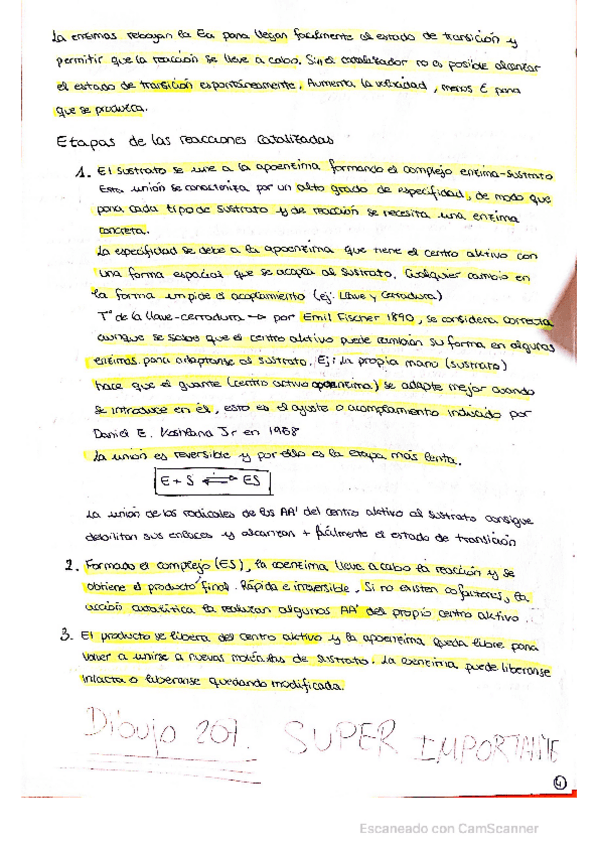 La enzimas rebajan la Ea para llegar facilmente al estado de transición y
permitir que la reacción se lleve a cabo. Sin el catalizador no es posible alcanzar
el estado de transición espontáneamente. Aumenta la velocidad, menos E para
que se produzca.
Etapas de las reacciones catalizadas
1. El sustrato se une a la apoenzima formando el complejo enzima-sustrato
Esta unión se caracteriza por un alto grado de especifidad, de modo que
para cada tipo de sustrato y de reacción se necesita una enzima
concreta.
La especifidad se debe a la apoenzima que tiene el centro aktivo con
una forma espacial que se acopla al sustrato. Cualquier cambio en
la forma impide el acoplamiento (ej: Llave y cerradura)
Tª de la llave-cerradura → por Emil Fischer 1890, se considera correcta
aunque se sabe que el centro aktivo puede cambiar su forma en algunas
enzimas para adaptarse al sustrato. Ej: La propia mano (sustrato)
hace que el guante (centro activo apoenzima) se adapte mejor cuando
se introduce en él, esto es el ajuste o acomplamiento inducido por
Daniel E. Koshland Jr en 1968
La unión es reversible y por ello es la etapa más lenta.
E + S ⇌ ES
La unión de los radicales de los AA' del centro aktivo al sustrato consigue
debilitar sus enlaces y alcanzan + fácilmente el estado de transición
2. Formado el complejo (ES), la coenzima lleva a cabo la reacción y se
obtiene el producto final. Rápida e irreversible. Si no existen cofactores, la
acción catalítica la realizan algunos AA' del propio centro aktivo.
3. El producto se libera del centro aktivo y la apoenzima queda libre para
volver a unirse a nuevas moléculas de sustrato. La coenzima puede liberarse
intacta o liberarse quedando modificada.
Dibujo 207. SUPER IMPORTANTE
4
Escaneado con CamScanner